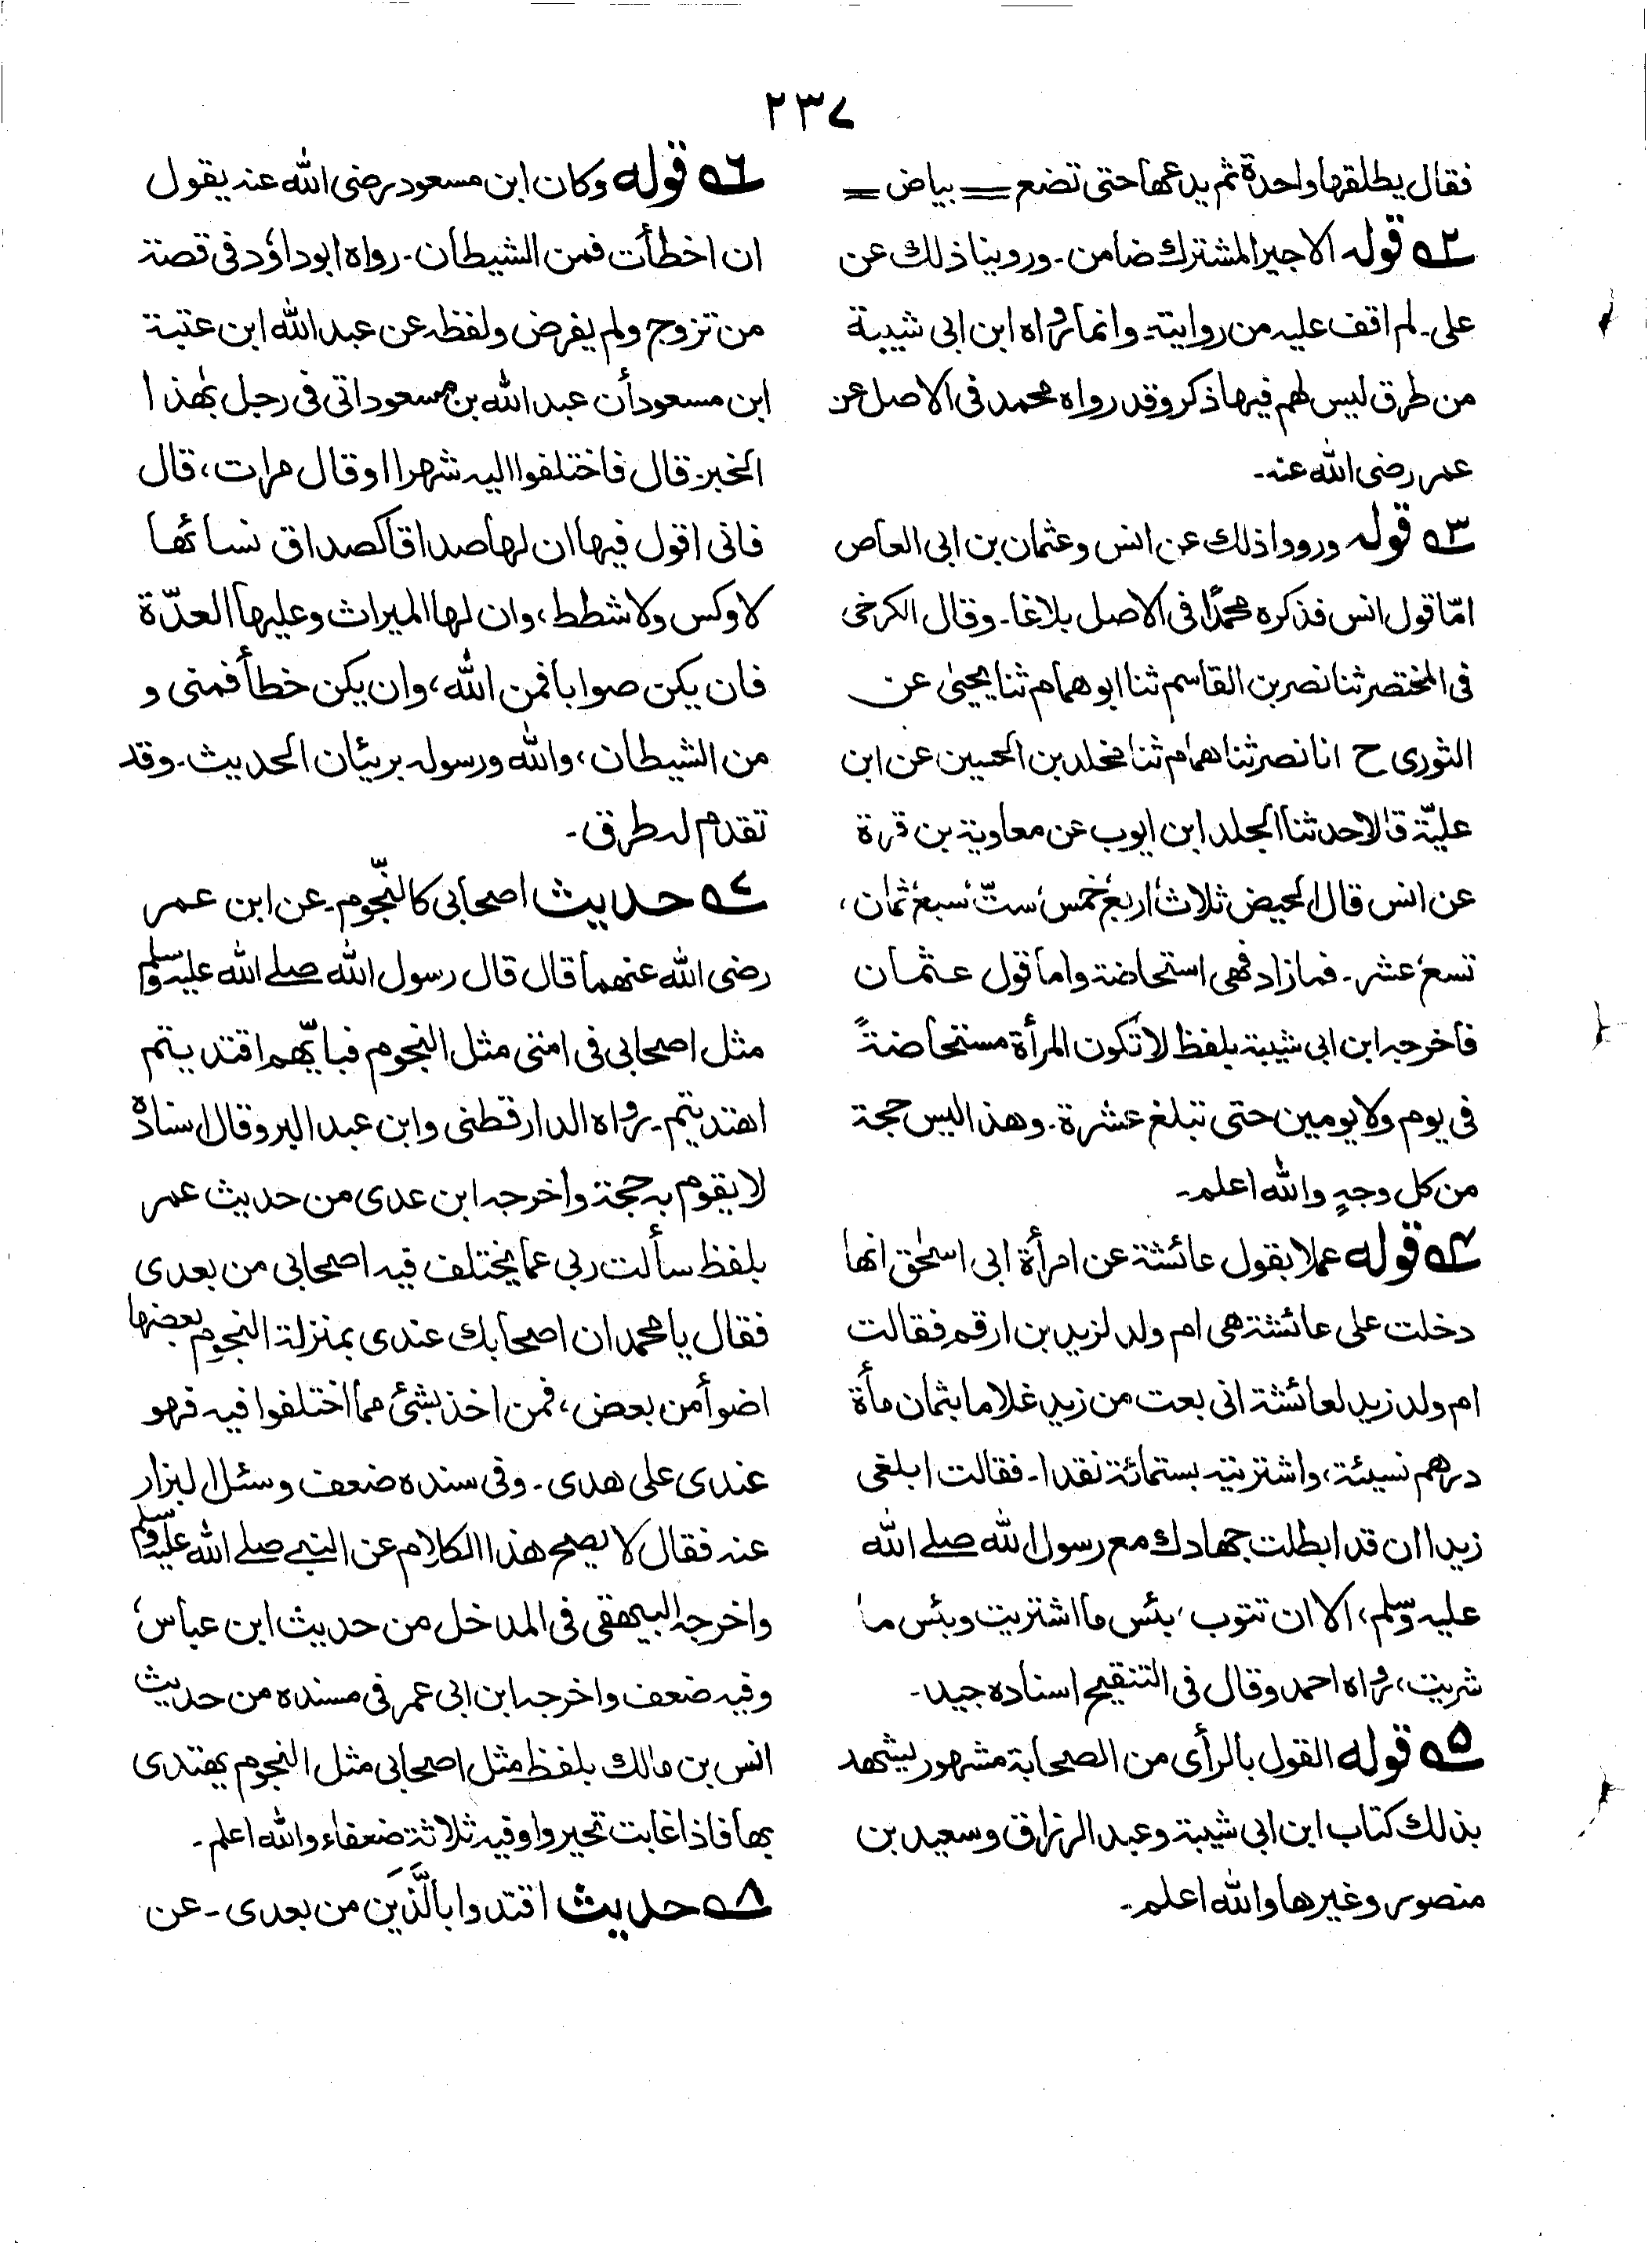 ٢٣٧
فقال يطلقها واحدة ثم يدعها حتى تضع = بياض =
٢ قوله الاجير المشترك ضامن۔ وروينا ذلك عن
على۔ لم اقف عليه من روايته۔ وانما رواه ابن ابى شيبة
من طرق ليس لهم فيها ذكر وقد رواه محمد فى الاصل عن
عمر رضى الله عنه۔
٣ قوله ورووا ذلك عن انس وعثمان بن ابى العاص
امّا قول انس فذكره محمدًا فى الاصل بلاغا۔ وقال الكرخى
فى المختصر ثنا نصر بن القاسم ثنا ابو همام ثنا يحيىٰ عن
الثورى ح انا نصر ثنا همام ثنا مخلد بن الحسين عن ابن
عليّة قالا حدثنا الجلد ابن ايوب عن معاوية بن قرة
عن انس قال الحيض ثلاث، اربع، خمس، ستّ، سبع، ثمان،
تسع، عشر۔ فما زاد فهى استحاضة واما قول عثمان
فاخرجه ابن ابى شيبة بلفظ لا تكون المرأة مستحاضةً
فى يوم ولا يومين حتى تبلغ عشرة۔ وهذا ليس حجة
من كل وجهٍ والله اعلم۔
٤ قوله عملا بقول عائشة عن امرأة ابى اسحٰق انها
دخلت على عائشة هى ام ولد لزيد بن ارقم فقالت
ام ولد زيد لعائشة انى بعت من زيد غلاما بثمان مأة
درهم نسيئة، واشتريته بستمائة نقدا۔ فقالت ابلغى
زيدا ان قد ابطلت جهادك مع رسول الله صلے الله
عليه وسلم، الا ان تتوب، بئس ما اشتريت وبئس ما
شريت، رواه احمد وقال فى التنقيح اسناده جيد۔
۵ قوله القول بالرأى من الصحابة مشهور يشهد
بذلك كتاب ابن ابى شيبة وعبد الرزاق وسعيد بن
منصور وغيرها والله اعلم۔
٦ قوله وكان ابن مسعود رضى الله عنه يقول
ان اخطأت فمن الشيطان۔ رواه ابو داؤد فى قصة
من تزوج ولم يفرض ولفظه عن عبد الله ابن عتبة
ابن مسعود أن عبد الله بن مسعود اتى فى رجل بهٰذا
الخبر۔ قال فاختلفوا اليه شهرا او قال مرات، قال
فانى اقول فيها ان لها صداقا كصداق نسائها
لا وكس ولا شطط، وان لها الميراث وعليها العدّة
فان يكن صوابا فمن الله، وان يكن خطأ فمنى و
من الشيطان، والله ورسوله بريئان الحديث۔ وقد
تقدم له طرق۔
٧ حديث اصحابى كالنّجوم۔ عن ابن عمر
رضى الله عنهما قال قال رسول الله صلے الله عليه وسلم
مثل اصحابى فى امتى مثل النجوم فبايّهم اقتديتم
اهتديتم۔ رواه الدارقطنى وابن عبد البر وقال اسناده
لا يقوم به حجة واخرجه ابن عدى من حديث عمر
بلفظ سألت ربى عما يختلف فيه اصحابى من بعدى
فقال يا محمد ان اصحابك عندى بمنزلة النجوم بعضها
اضوأ من بعض، فمن اخذ بشئ مما اختلفوا فيه فهو
عندى على هدى۔ وفى سنده ضعف وسئل البزار
عنه فقال لا يصح هذا الكلام عن النبى صلے الله عليه وسلم
واخرجه البيهقى فى المدخل من حديث ابن عباس،
وفيه ضعف واخرجه ابن ابى عمر فى مسنده من حديث
انس بن مالك بلفظ مثل اصحابى مثل النجوم يهتدى
بها فاذا غابت تحيروا وفيه ثلاثة ضعفاء والله اعلم۔
٨ حديث اقتدوا بالَّذَين من بعدى۔ عن